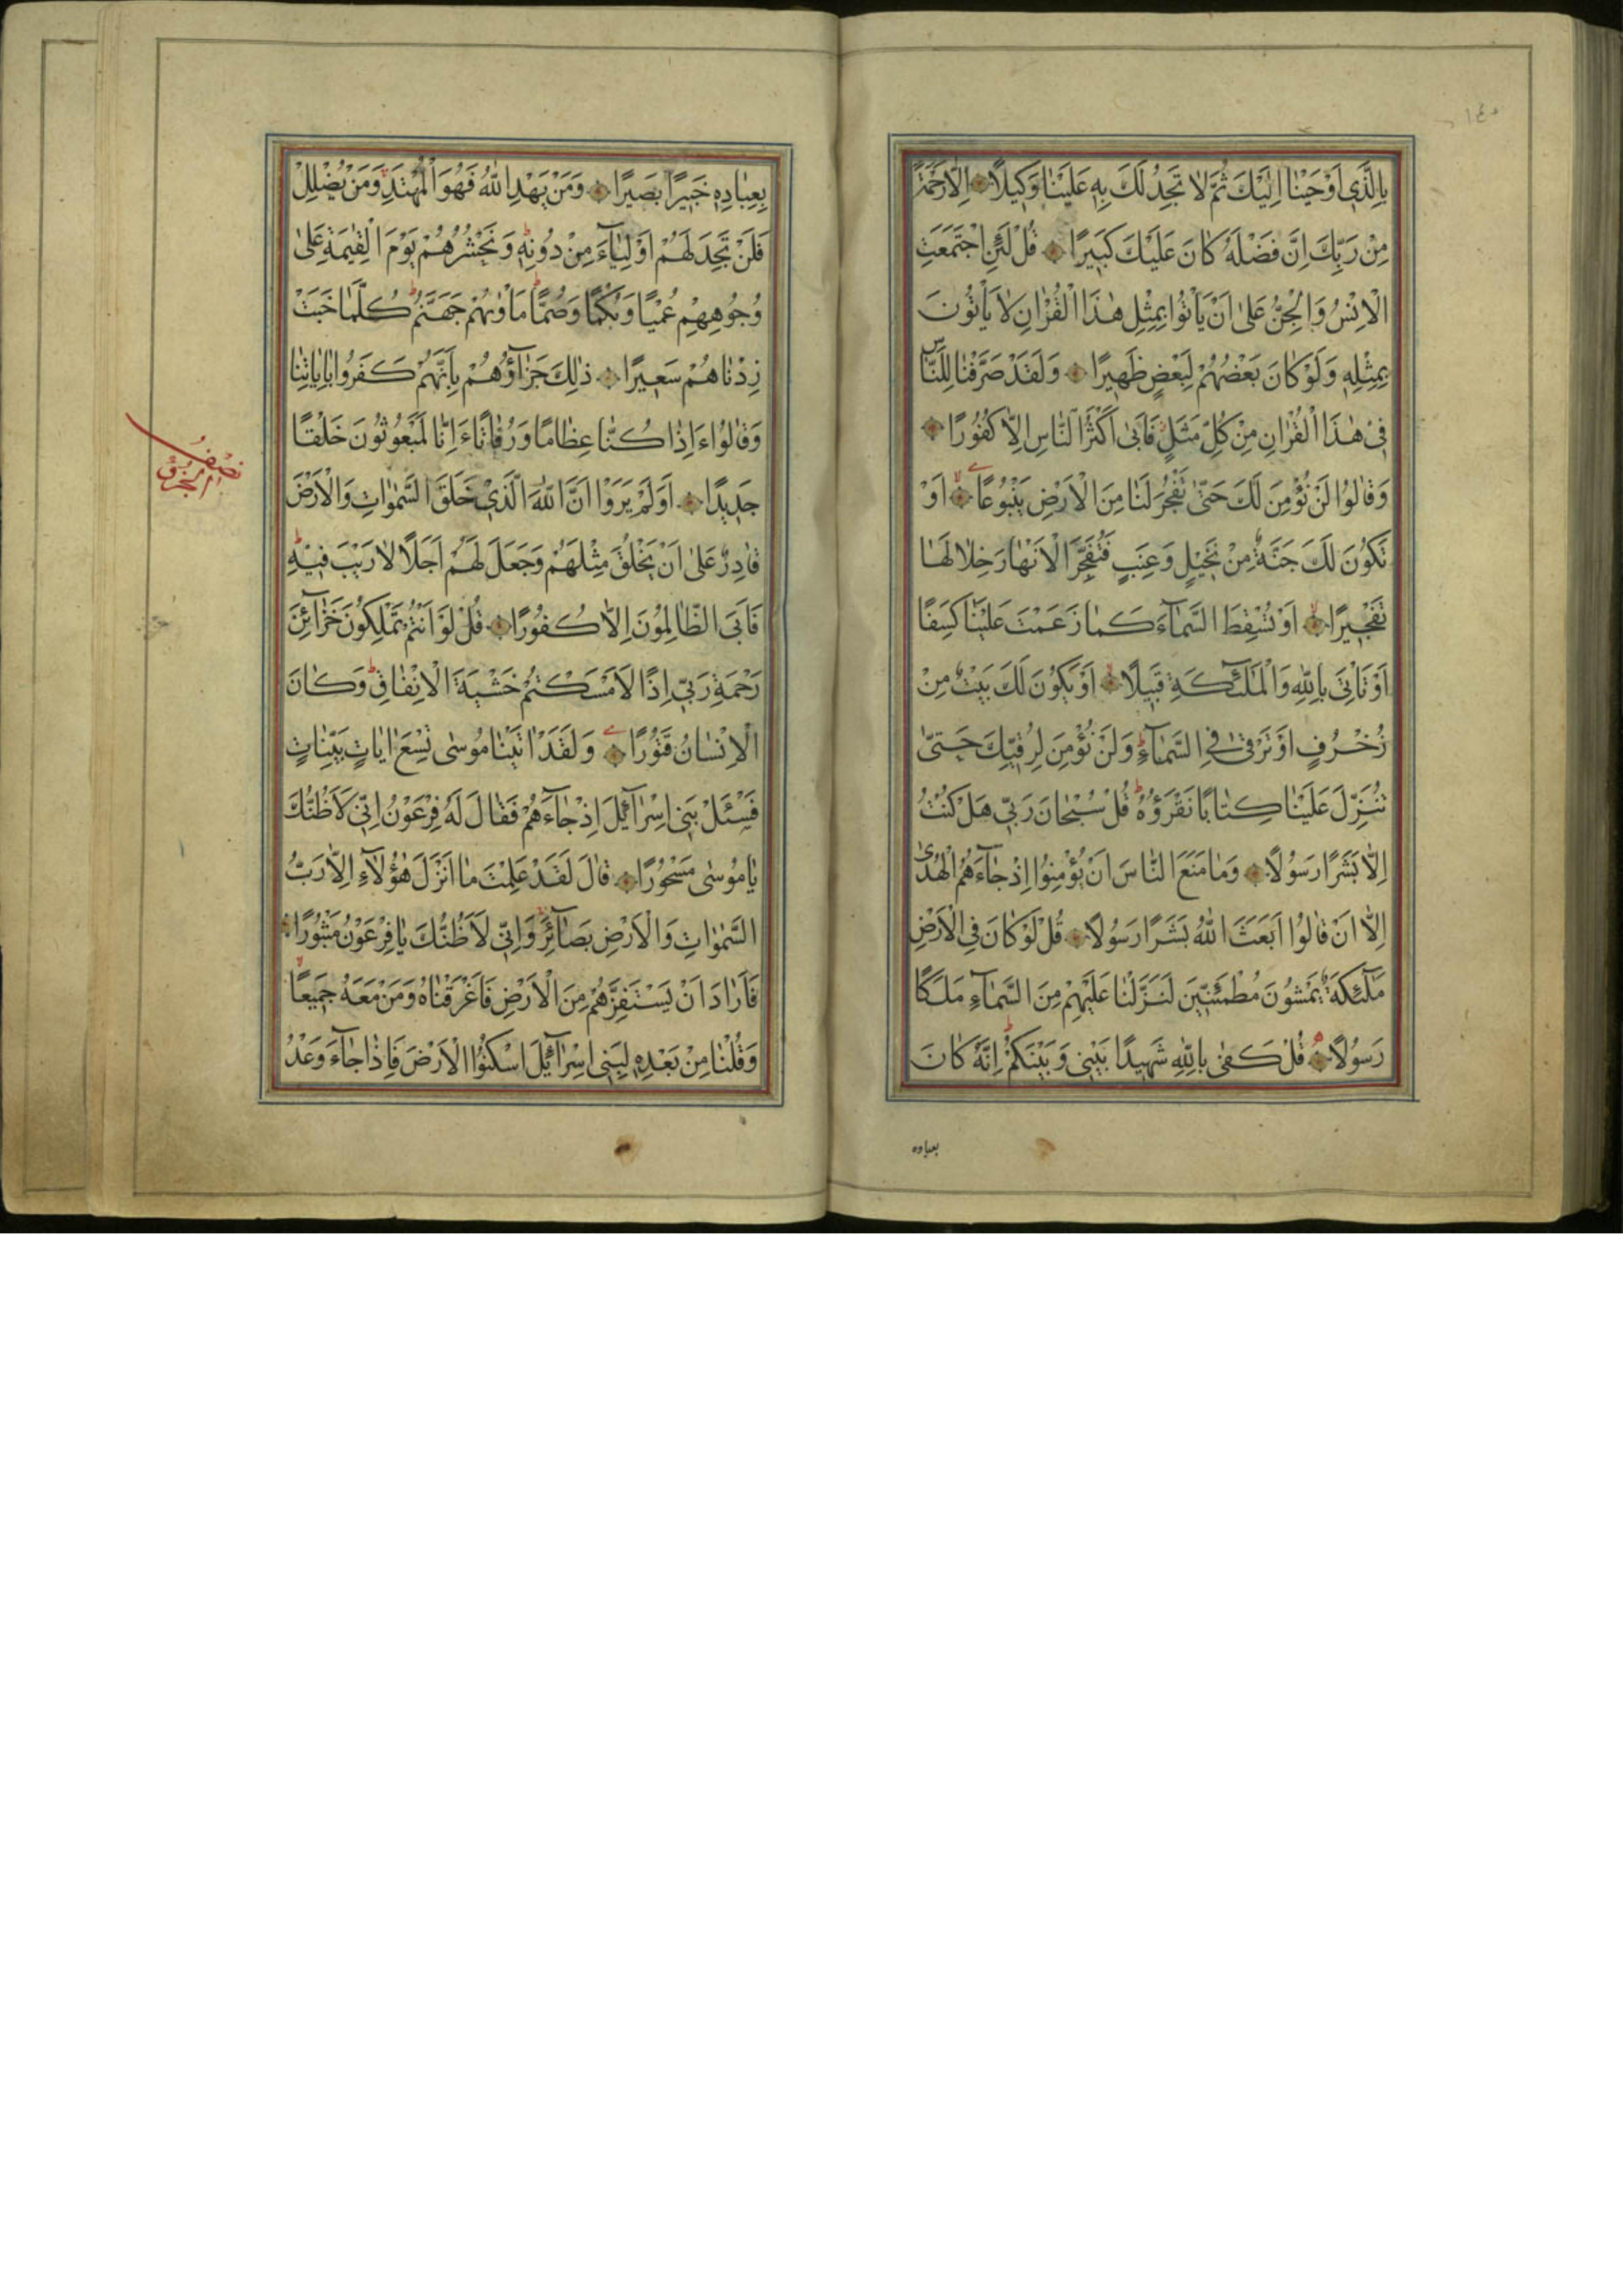 بِالَّذِي اَوْحَيْنَا اِلَيْكَ ثُمَّ لَا تَجِدُ لَكَ بِهِ عَلَيْنَا وَكِيلًا اِلَّا رَحْمَةً
مِنْ رَبِّكَ اِنَّ فَضْلَهُ كَانَ عَلَيْكَ كَبِيرًا قُلْ لَئِنِ اجْتَمَعَتِ
الْاِنْسُ وَالْجِنُّ عَلٰى اَنْ يَأْتُوا بِمِثْلِ هٰذَا الْقُرْاٰنِ لَا يَأْتُونَ
بِمِثْلِهِ وَلَوْ كَانَ بَعْضُهُمْ لِبَعْضٍ ظَهِيرًا وَلَقَدْ صَرَّفْنَا لِلنَّاسِ
فِي هٰذَا الْقُرْاٰنِ مِنْ كُلِّ مَثَلٍ فَاَبٰى اَكْثَرُ النَّاسِ اِلَّا كُفُورًا
وَقَالُوا لَنْ نُؤْمِنَ لَكَ حَتّٰى تَفْجُرَ لَنَا مِنَ الْاَرْضِ يَنْبُوعًا اَوْ
تَكُونَ لَكَ جَنَّةٌ مِنْ نَخِيلٍ وَعِنَبٍ فَتُفَجِّرَ الْاَنْهَارَ خِلَالَهَا
تَفْجِيرًا اَوْ تُسْقِطَ السَّمَآءَ كَمَا زَعَمْتَ عَلَيْنَا كِسَفًا
اَوْ تَاْتِيَ بِاللّٰهِ وَالْمَلٰٓئِكَةِ قَبِيلًا اَوْ يَكُونَ لَكَ بَيْتٌ مِنْ
زُخْرُفٍ اَوْ تَرْقٰى فِي السَّمَآءِ وَلَنْ نُؤْمِنَ لِرُقِيِّكَ حَتّٰى
تُنَزِّلَ عَلَيْنَا كِتَابًا نَقْرَؤُهُ قُلْ سُبْحَانَ رَبِّي هَلْ كُنْتُ
اِلَّا بَشَرًا رَسُولًا وَمَا مَنَعَ النَّاسَ اَنْ يُؤْمِنُوا اِذْ جَآءَهُمُ الْهُدٰى
اِلَّا اَنْ قَالُوا اَبَعَثَ اللّٰهُ بَشَرًا رَسُولًا قُلْ لَوْ كَانَ فِي الْاَرْضِ
مَلٰٓئِكَةٌ يَمْشُونَ مُطْمَئِنِّينَ لَنَزَّلْنَا عَلَيْهِمْ مِنَ السَّمَآءِ مَلَكًا
رَسُولًا قُلْ كَفٰى بِاللّٰهِ شَهِيدًا بَيْنِي وَبَيْنَكُمْ اِنَّهُ كَانَ
بعباده
بِعِبَادِهِ خَبِيرًا بَصِيرًا وَمَنْ يَهْدِ اللّٰهُ فَهُوَ الْمُهْتَدِ وَمَنْ يُضْلِلْ
فَلَنْ تَجِدَ لَهُمْ اَوْلِيَآءَ مِنْ دُونِهِ وَنَحْشُرُهُمْ يَوْمَ الْقِيٰمَةِ عَلٰى
وُجُوهِهِمْ عُمْيًا وَبُكْمًا وَصُمًّا مَأْوٰيهُمْ جَهَنَّمُ كُلَّمَا خَبَتْ
زِدْنَاهُمْ سَعِيرًا ذٰلِكَ جَزَآؤُهُمْ بِاَنَّهُمْ كَفَرُوا بِاٰيَاتِنَا
وَقَالُوا ءَاِذَا كُنَّا عِظَامًا وَرُفَاتًا ءَاِنَّا لَمَبْعُوثُونَ خَلْقًا
جَدِيدًا اَوَلَمْ يَرَوْا اَنَّ اللّٰهَ الَّذِي خَلَقَ السَّمٰوَاتِ وَالْاَرْضَ
قَادِرٌ عَلٰى اَنْ يَخْلُقَ مِثْلَهُمْ وَجَعَلَ لَهُمْ اَجَلًا لَا رَيْبَ فِيهِ
فَاَبَى الظَّالِمُونَ اِلَّا كُفُورًا قُلْ لَوْ اَنْتُمْ تَمْلِكُونَ خَزَآئِنَ
رَحْمَةِ رَبِّي اِذًا لَاَمْسَكْتُمْ خَشْيَةَ الْاِنْفَاقِ وَكَانَ
الْاِنْسَانُ قَتُورًا وَلَقَدْ اٰتَيْنَا مُوسٰى تِسْعَ اٰيَاتٍ بَيِّنَاتٍ
فَسْئَلْ بَنِي اِسْرَآئِيلَ اِذْ جَآءَهُمْ فَقَالَ لَهُ فِرْعَوْنُ اِنِّي لَاَظُنُّكَ
يَا مُوسٰى مَسْحُورًا قَالَ لَقَدْ عَلِمْتَ مَا اَنْزَلَ هٰؤُلَآءِ اِلَّا رَبُّ
السَّمٰوَاتِ وَالْاَرْضِ بَصَآئِرَ وَاِنِّي لَاَظُنُّكَ يَا فِرْعَوْنُ مَثْبُورًا
فَاَرَادَ اَنْ يَسْتَفِزَّهُمْ مِنَ الْاَرْضِ فَاَغْرَقْنَاهُ وَمَنْ مَعَهُ جَمِيعًا
وَقُلْنَا مِنْ بَعْدِهِ لِبَنِي اِسْرَآئِيلَ اسْكُنُوا الْاَرْضَ فَاِذَا جَآءَ وَعْدُ
نصف
الجزؤ